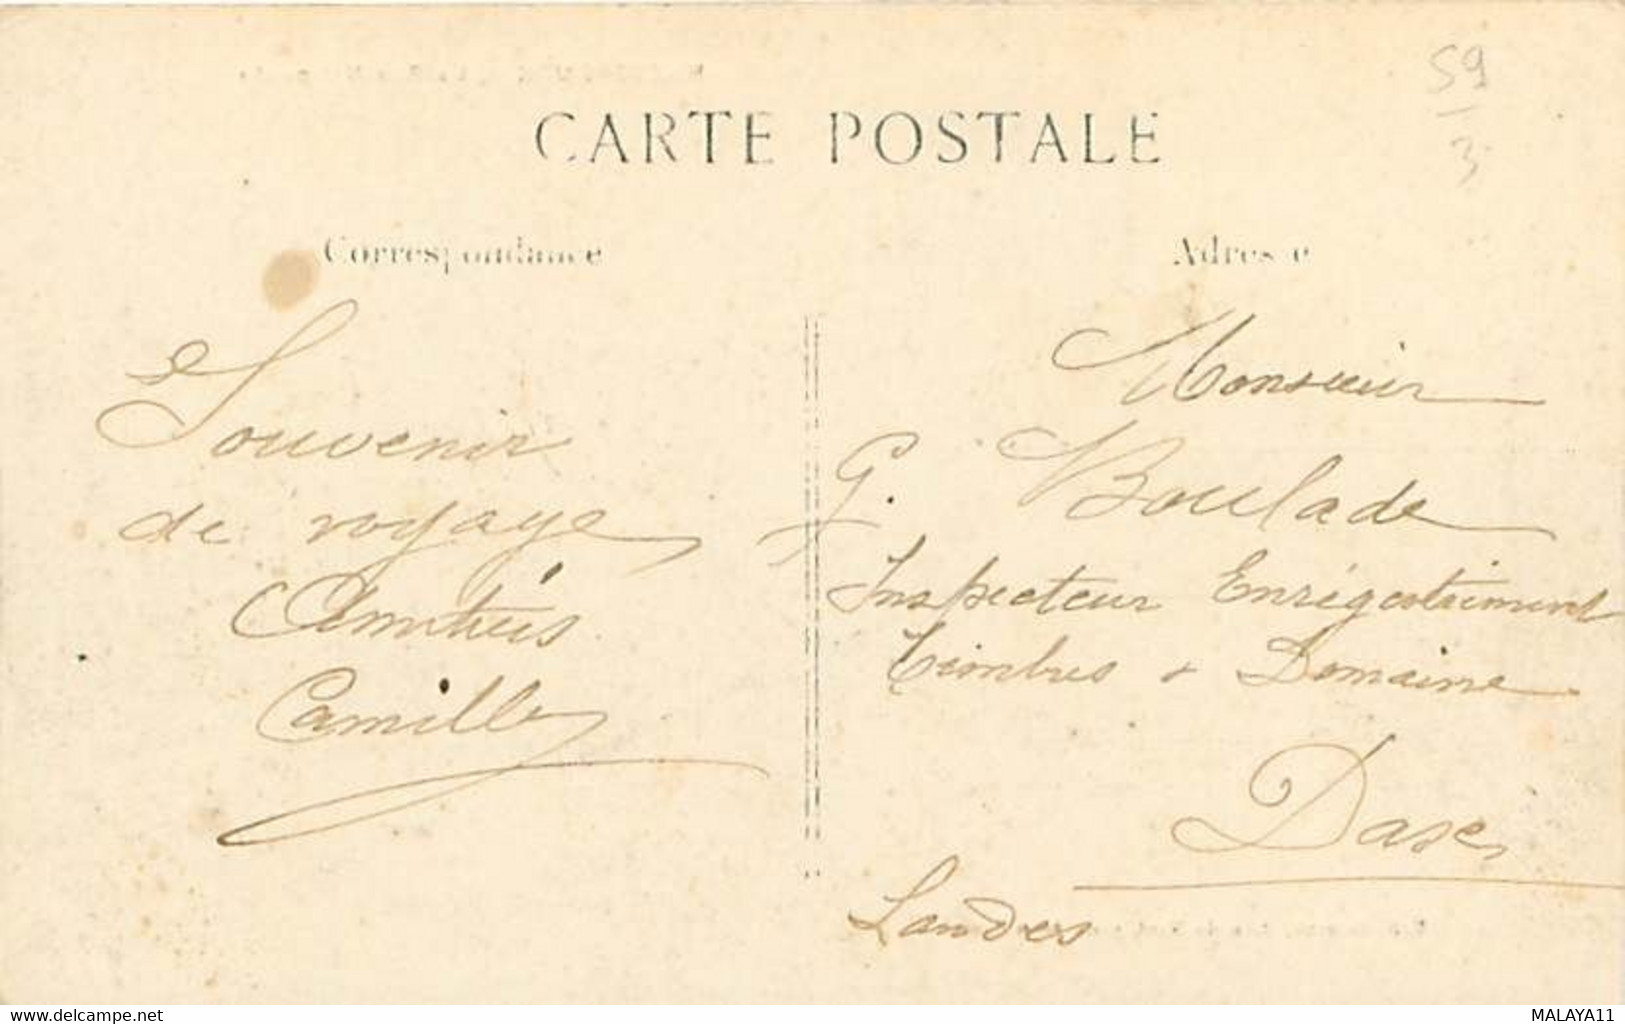 59
3
CARTE POSTALE
Correspondance
Adresse
Souvenir
de voyage
Amitiés
Camille
Monsieur
G. Boulade
Inspecteur Enrégistriment
Timbres & Domaine
Dax
Landes
www.delcampe.net
MALAYA11